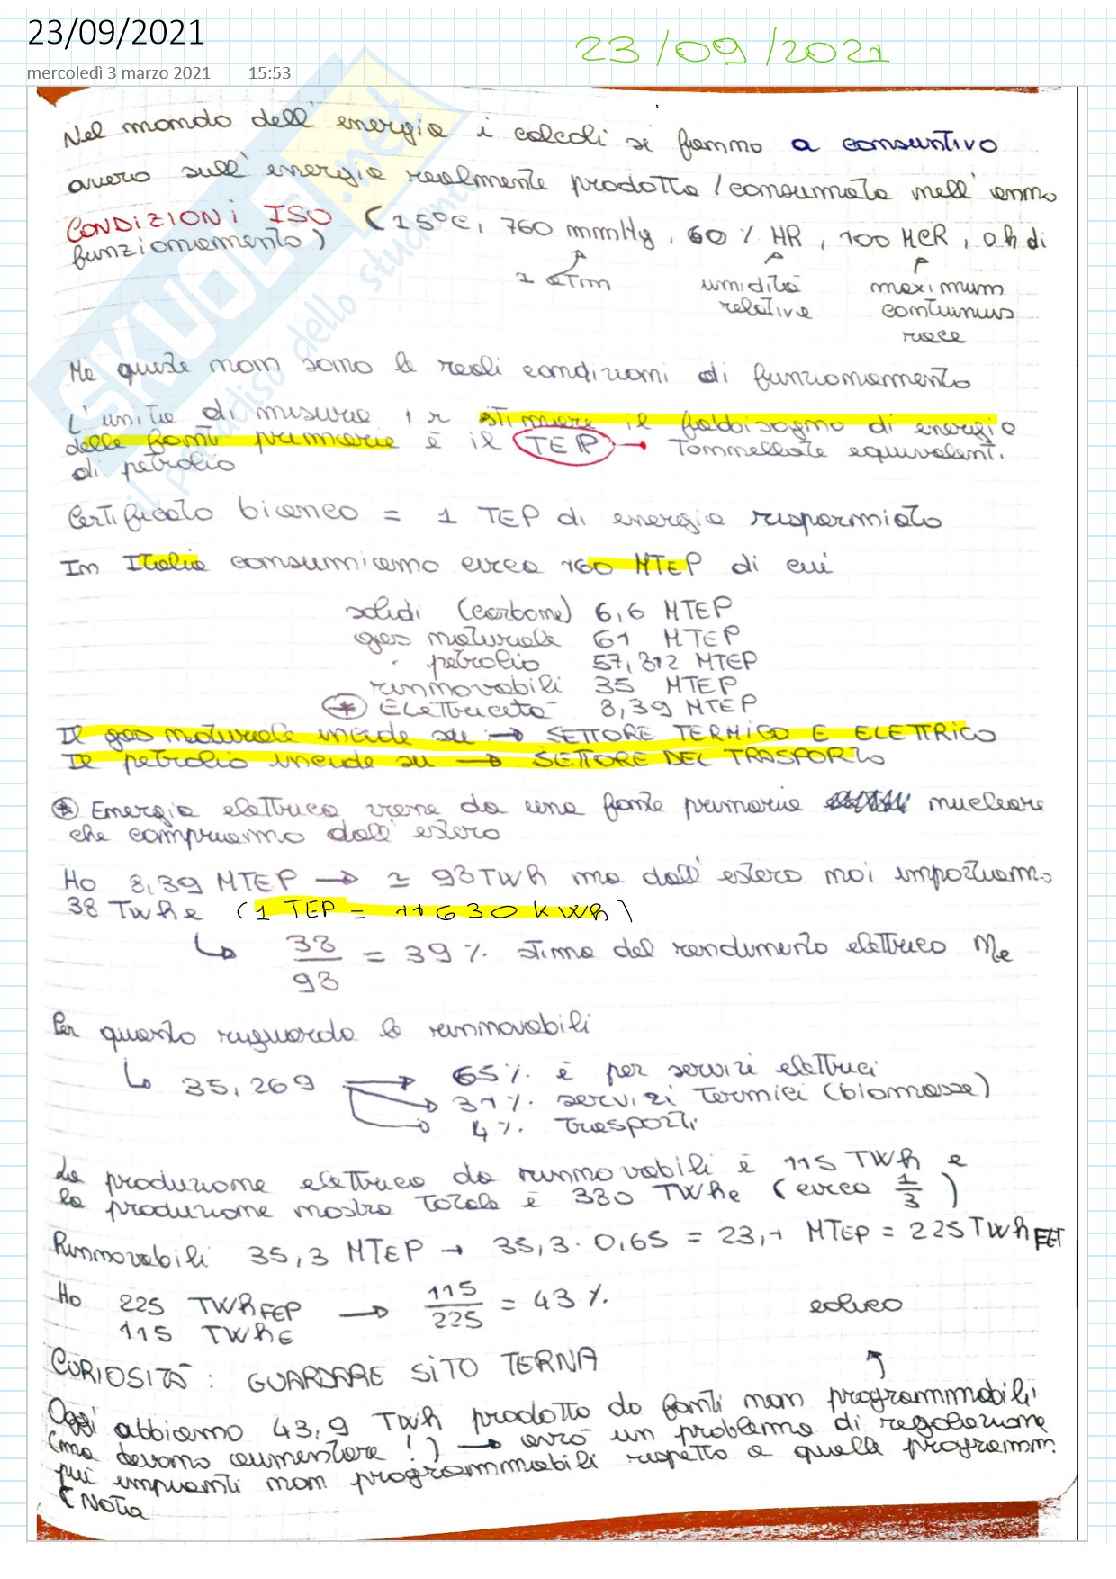 23/09/2021
mercoledì 3 marzo 2021 15:53
23/09/2021
Nel mondo dell'energia i calcoli si fanno a consuntivo
ovvero sull'energia realmente prodotta / consumata nell'anno
CONDIZIONI ISO (15°C, 760 mmHg, 60 % HR, 100 MCR, 0 h di
funzionamento)
1 atm umidità maximum
relative continuous
race
Ma queste non sono le reali condizioni di funzionamento
L'unità di misura x stimare il fabbisogno di energia
delle fonti primarie è il TEP → Tonnellate equivalenti
di petrolio
Certificato bianco = 1 TEP di energia risparmiato
In Italia consumiamo circa 160 MTEP di cui
solidi (carbone) 6,6 MTEP
gas naturale 61 MTEP
• petrolio 57,312 MTEP
rinnovabili 35 MTEP
* ELETTRICITÀ 8,39 MTEP
Il gas naturale incide su → SETTORE TERMICO E ELETTRICO
Il petrolio incide su → SETTORE DEL TRASPORTO
* Energia elettrica viene da una fonte primaria nucleare
che compriamo dall'estero
Ho 8,39 MTEP → ≃ 98 TWh ma dall'estero noi importiamo
38 TWhe (1 TEP = 11630 kWh)
↳ 38/98 = 39 % stima del rendimento elettrico ηe
Per quanto riguarda le rinnovabili
↳ 35,269 → 65% è per servizi elettrici
→ 31% servizi termici (biomasse)
→ 4% trasporti
La produzione elettrica da rinnovabili è 115 TWh e
la produzione nostra totale è 330 TWhe (circa 1/3)
Rinnovabili 35,3 MTEP → 35,3 · 0,65 = 23,1 MTEP = 225 TWh
Ho 225 TWhFEP → 115/225 = 43 % eolico
115 TWhE
CURIOSITÀ : GUARDARE SITO TERNA
Oggi abbiamo 43,9 TWh prodotto da fonti non programmabili
(ma devono aumentare!) → avrò un problema di regolazione
più impianti non programmabili rispetto a quelle programm.
Nota
SKUOLA.net
il paradiso dello studente